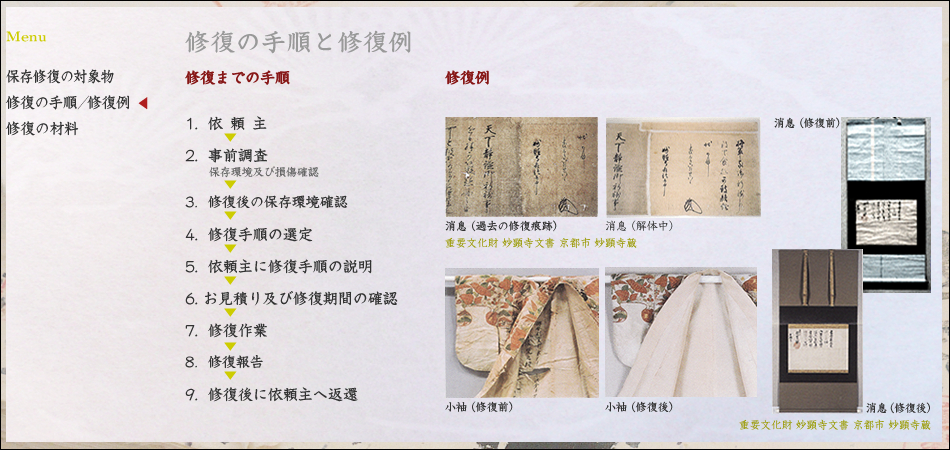 Menu
保存修復の対象物
修復の手順/修復例
修復の材料
修復の手順と修復例
修復までの手順
1. 依 頼 主
2. 事前調査
保存環境及び損傷確認
3. 修復後の保存環境確認
4. 修復手順の選定
5. 依頼主に修復手順の説明
6. お見積り及び修復期間の確認
7. 修復作業
8. 修復報告
9. 修復後に依頼主へ返還
修復例
消息 (過去の修復痕跡)
消息 (解体中)
重要文化財 妙顕寺文書 京都市 妙顕寺蔵
消息 (修復前)
小袖 (修復前)
小袖 (修復後)
消息 (修復後)
重要文化財 妙顕寺文書 京都市 妙顕寺蔵